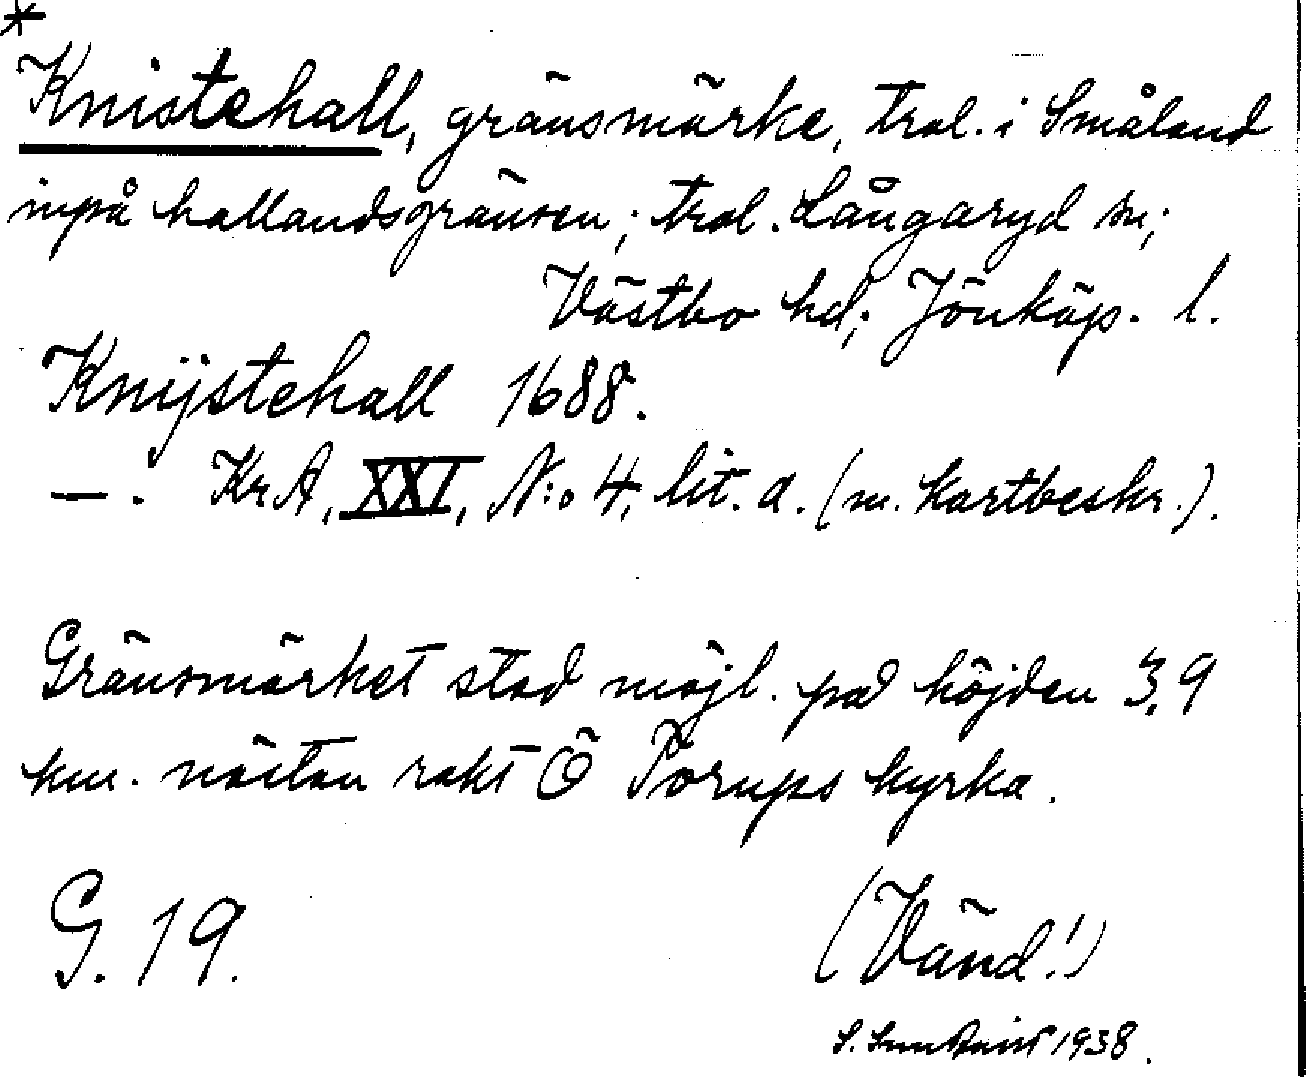 *
Knistehall, gränsmärke, trol. i Småland
inpå hallandsgränsen; trol. Långaryd sn;
Västbo hd; Jönköp. l.
Knijstehall 1688.
—. KrA, XXI, N:o 4, lit. a. (m. kartbeskr.).
Gränsmärket stod möjl. på höjden 3,9
km. nästan rakt Ö Torups kyrka.
G. 19.
(Vänd!)
S. 1938.